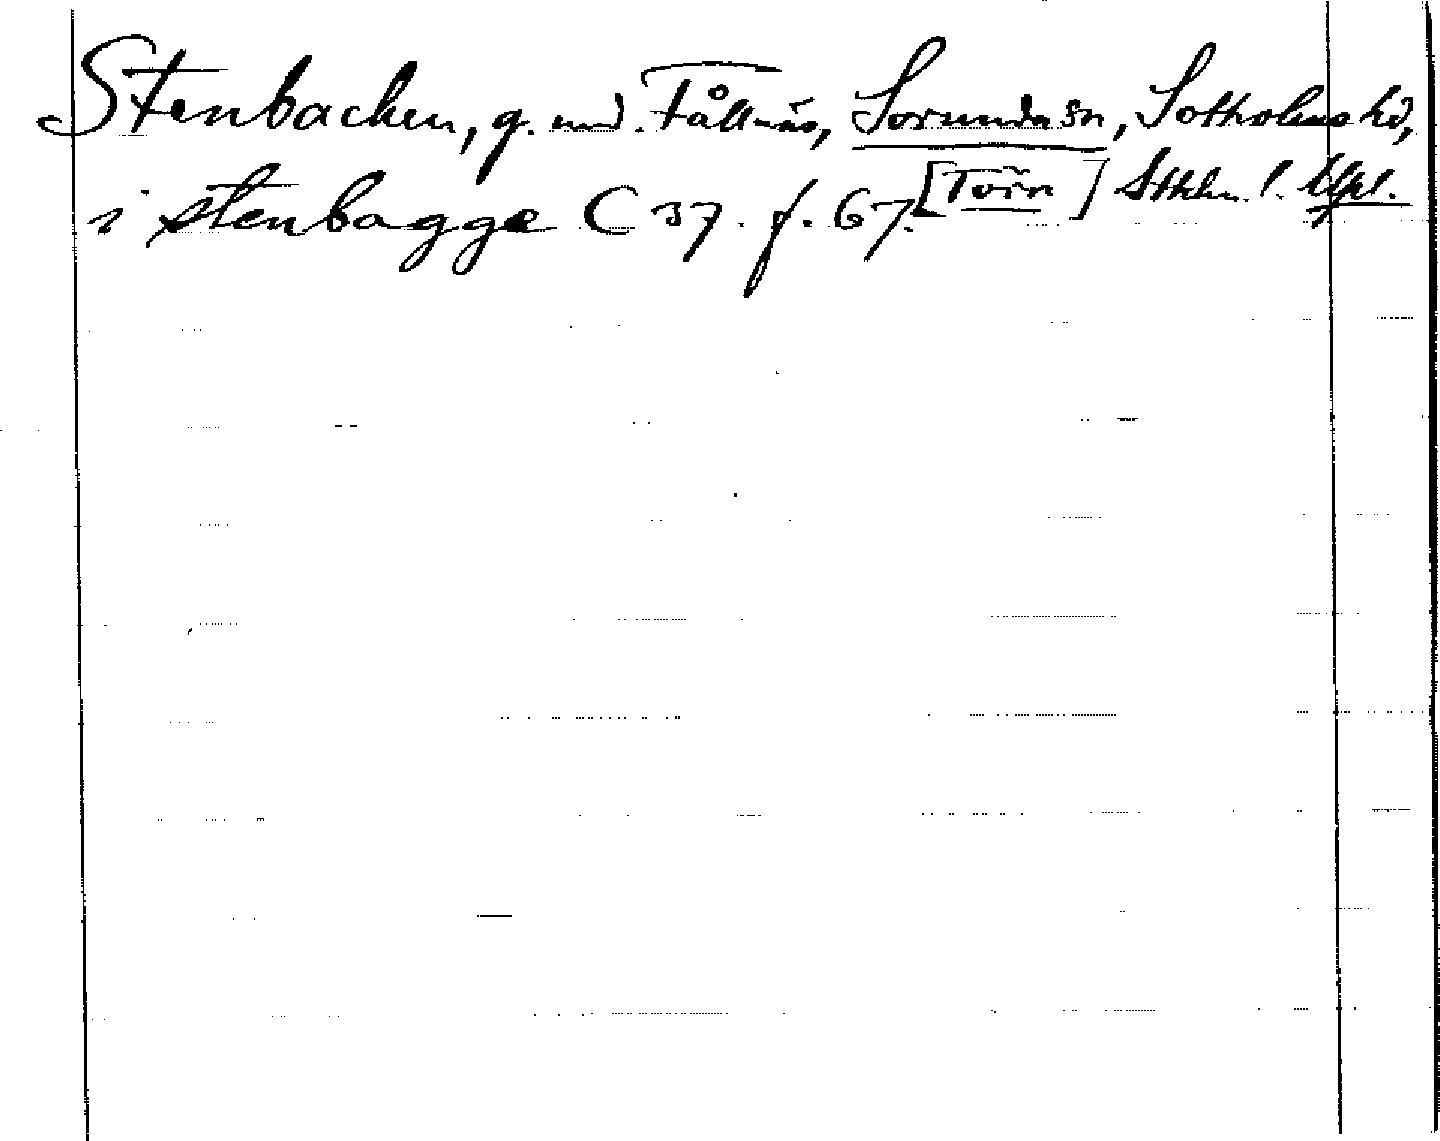 Stenbacken, g. und. Fållnäs, Sorunda sn, Sotholms hd,
i stenbagge C 37. f. 67. [Törn] Sthlm. l. Upl.